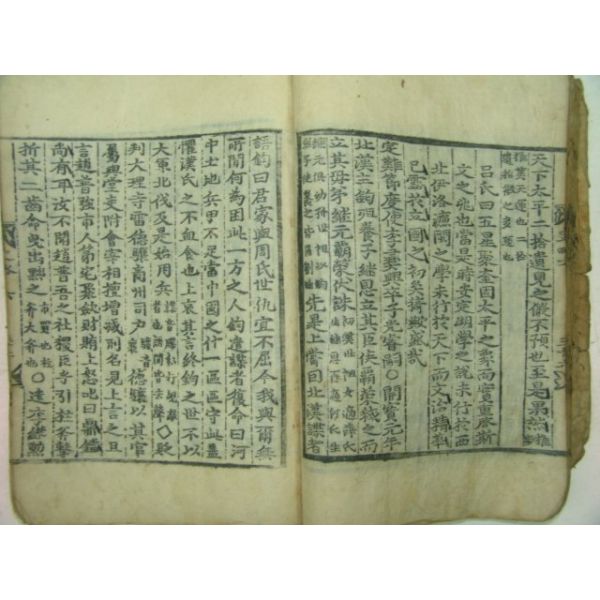 天下太平二拾遺見之儆不預也至是果然
呂氏曰五星聚奎固太平之象而實重啓斯
文之兆也當是時安定湖學之說未行於西
北伊洛濂關之學未行於天下而文治精華
已露於立國之初矣猗歟盛哉
定難節度使李彝興卒子光睿嗣〇開寶元年
北漢主鈞殂養子繼恩立其臣侯霸榮弑之而
立其母弟繼元霸榮伏誅
先是上嘗因北漢諜者
語鈞曰君家與周氏世仇宜不屈今我與爾無
所間何為困此一方之人鈞遣諜者復命曰河
中土地兵甲不足當中國之什一區區守此蓋
懼漢氏之不血食也上哀其言終鈞之世不以
大軍北伐及是始用兵
判大理寺雷德驤商州司戶
德驤以其官
屬與堂吏附會宰相擅增減刑名見上言之且
言趙普強市人第宅聚歛財賄上怒叱曰鼎鐺
尚有耳汝不聞趙普吾之社稷臣乎引柱斧擊
折其二齒命曳出黜之